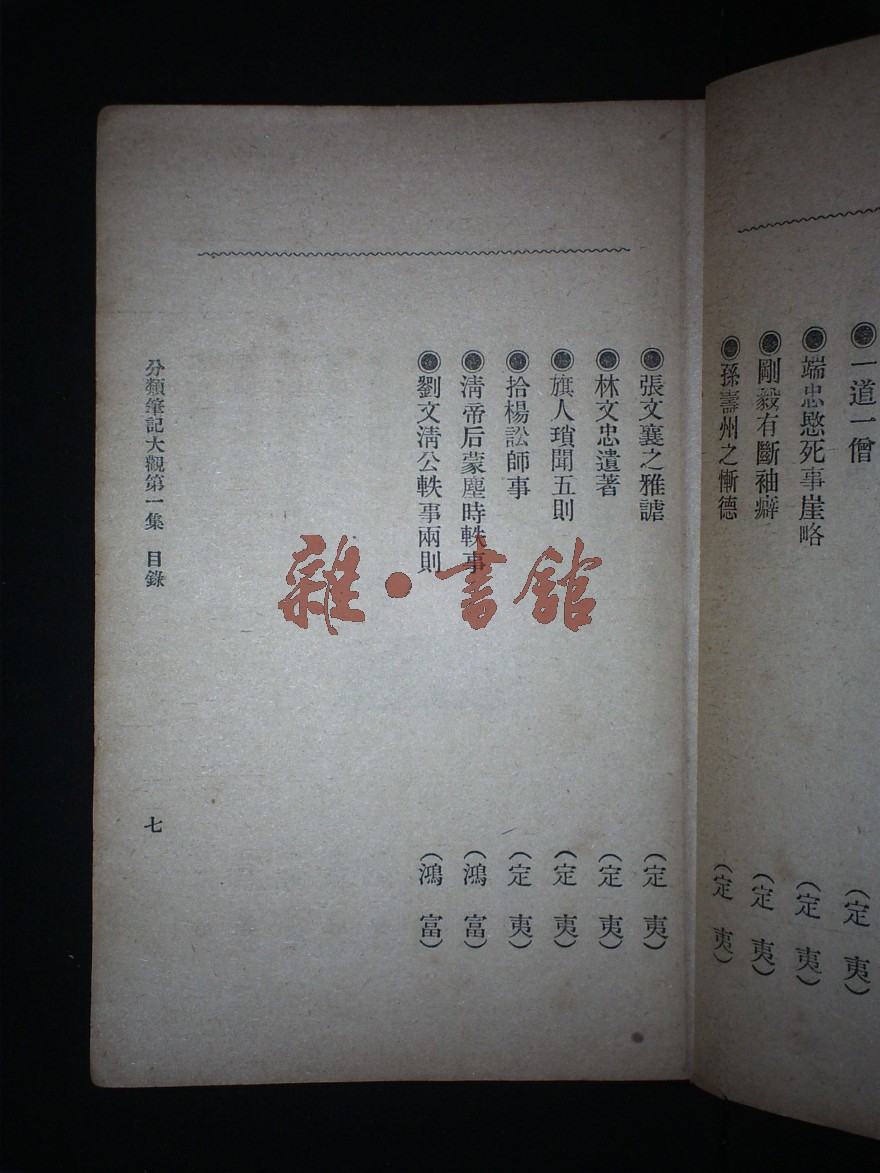 一道一僧 （定夷）
端忠愍死事崖略 （定夷）
剛毅有斷袖癖 （定夷）
孫壽州之慚德 （定夷）
張文襄之雅謔 （定夷）
林文忠遺著 （定夷）
旗人瑣聞五則 （定夷）
拾楊訟師事 （定夷）
淸帝后蒙塵時軼事 （鴻富）
劉文淸公軼事兩則 （鴻富）
分類筆記大觀第一集 目錄 七
雜·書館